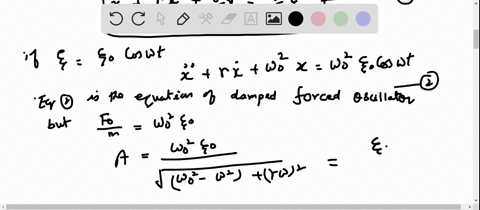 if ξ = ξ₀ cos ωt
ẍ + rẋ + ω₀² x = ω₀² ξ₀ cos ωt
Eq ② is the equation of damped forced oscillator — ②
but F₀/m = ω₀² ξ₀
A = ω₀² ξ₀ / √((ω₀² - ω²) + (rω)²) = ξ.